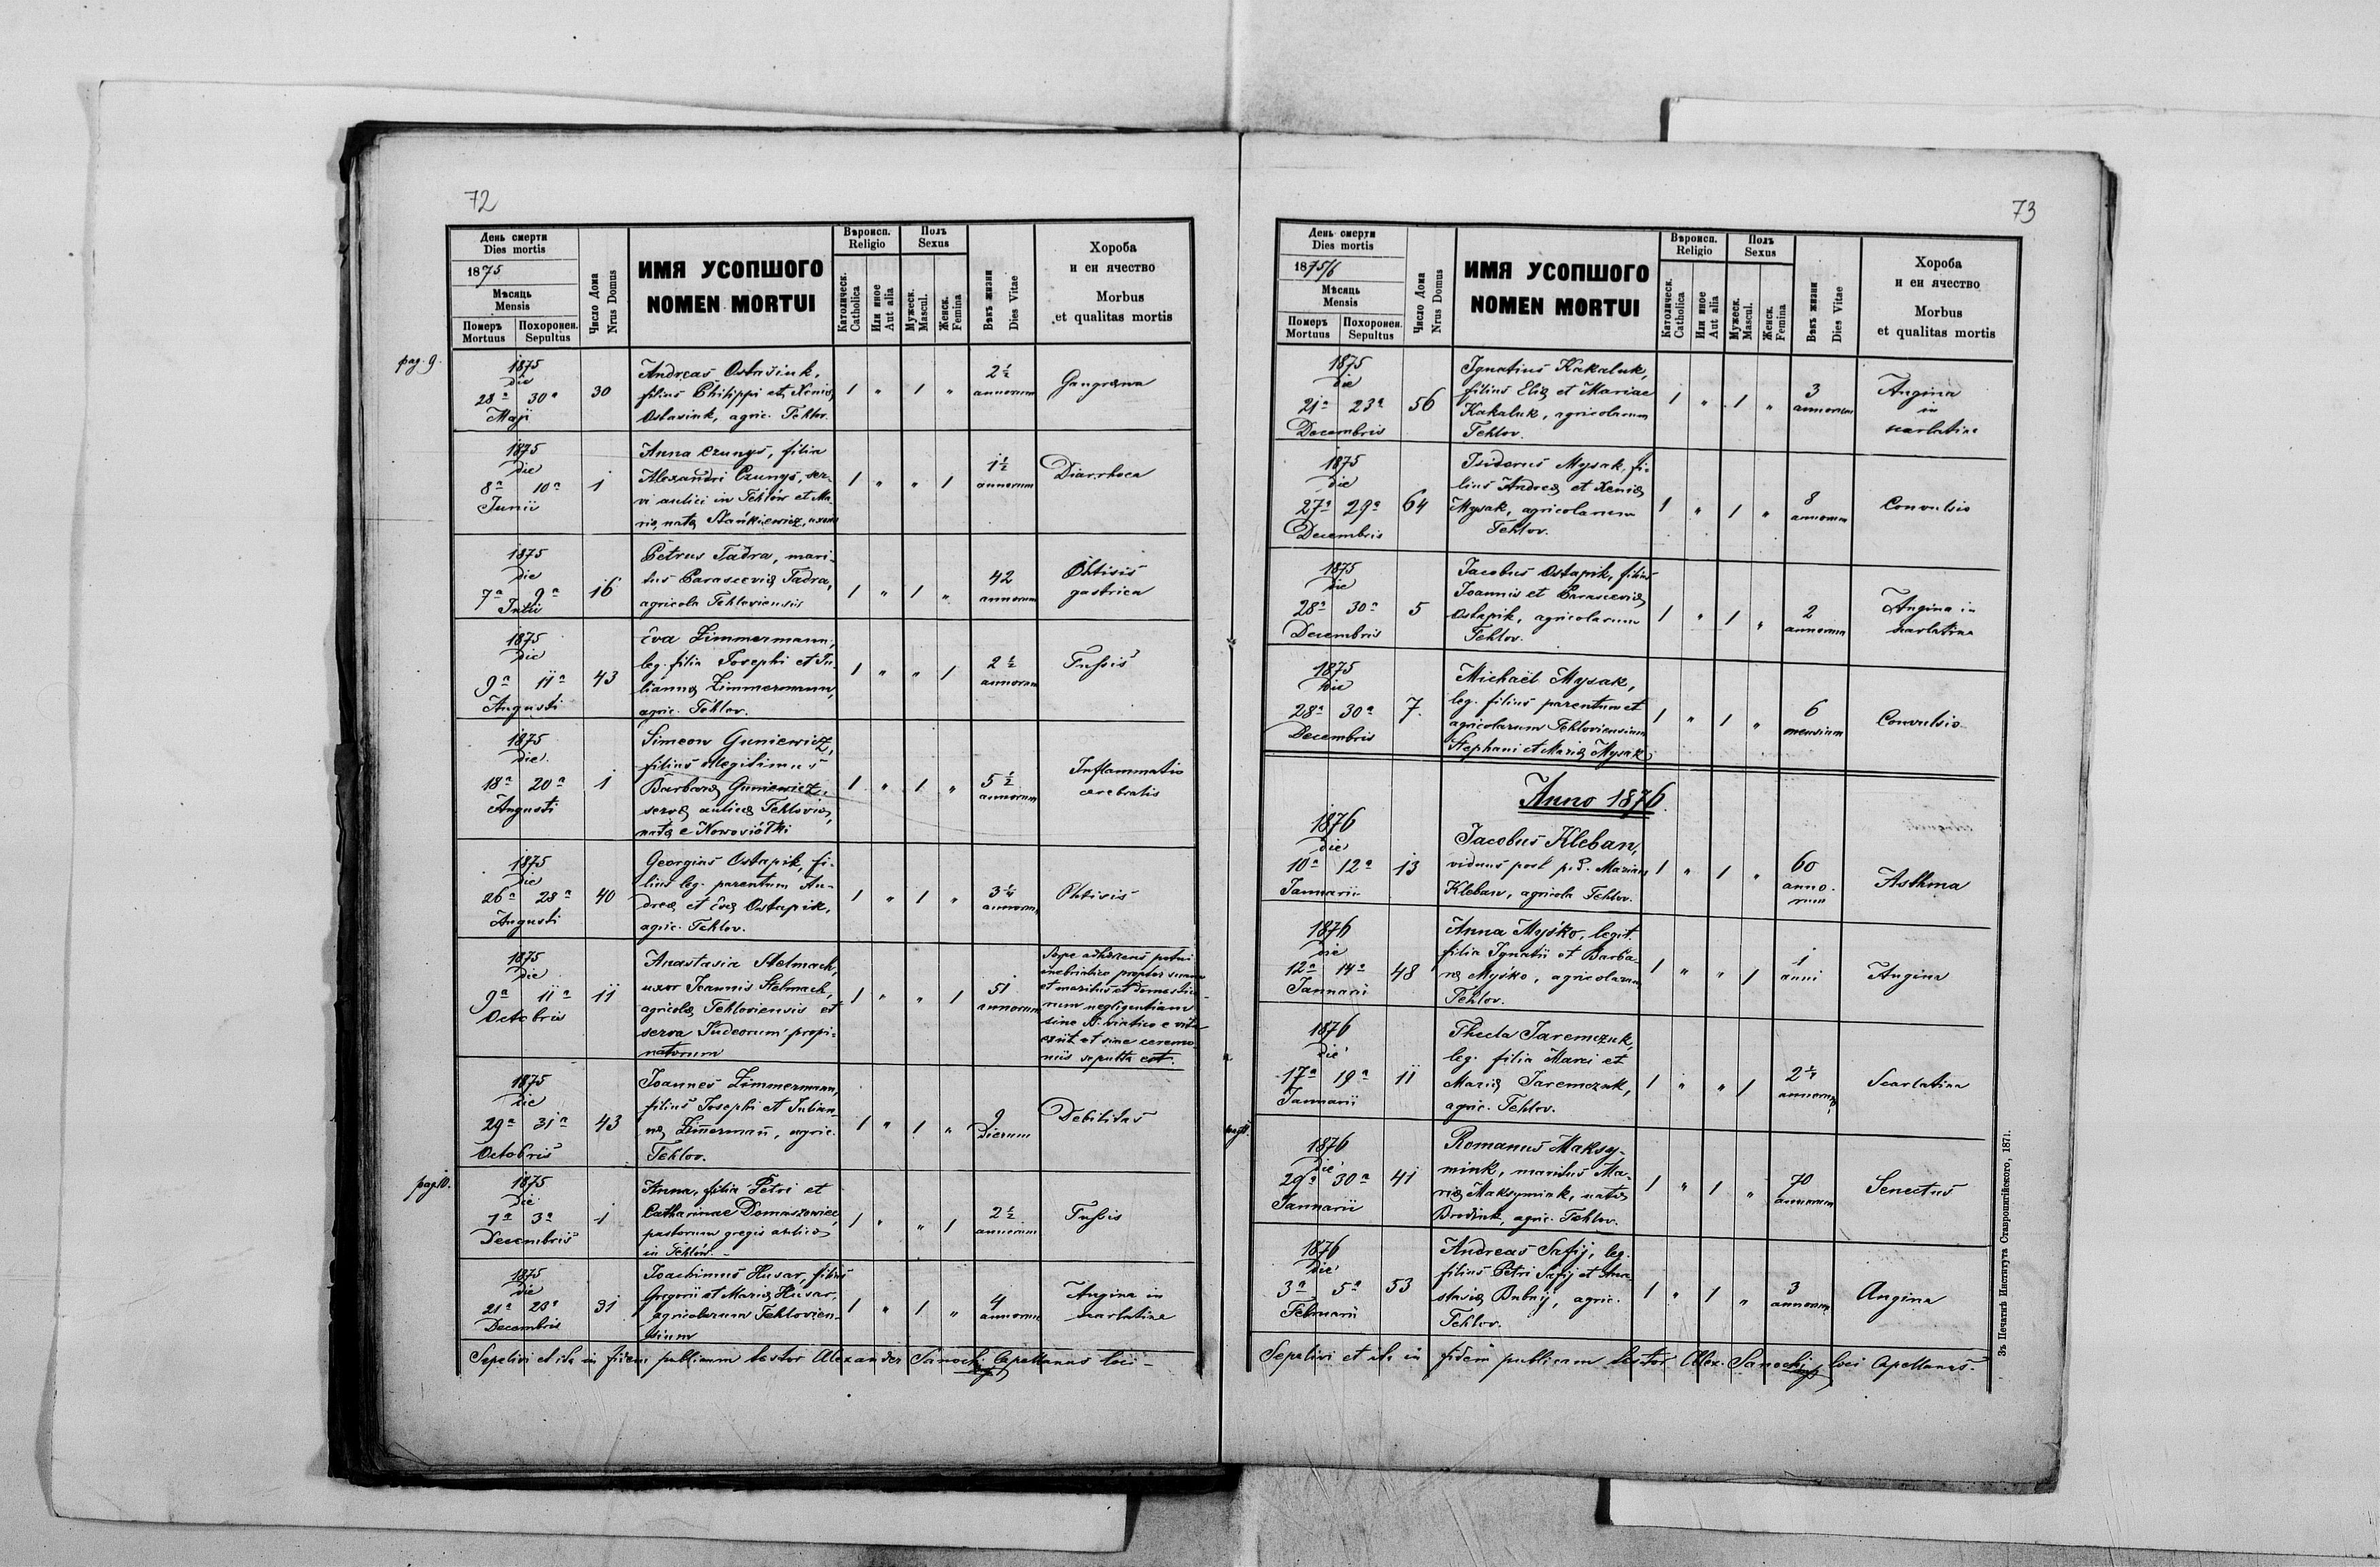 72
День смерти
Dies mortis
1875
Мѣсяць
Mensis
Померъ
Mortuus
Похоронен.
Sepultus
Число Дома
Nrus Domus
ИМЯ УСОПШОГО
NOMEN MORTUI
Вѣроисп.
Religio
Католическ.
Catholica
Или иное
Aut alia
Полъ
Sexus
Мужеск.
Mascul.
Женск.
Femina
Вѣкъ жизни
Dies Vitae
Хороба
и еи ячество
Morbus
et qualitas mortis
pag. 9.
1875
die
28ª 30ª
Maji
30
Andreas Ostasiuk,
filius Philippi et Xeniæ
Ostasiuk, agric. Tehlov.
1 " 1 "
2½
annorum
Gangræna
1875
die
8ª 10ª
Junii
1
Anna Czunys, filia
Alexandri Czunys, ser-
vi aulici in Tehlów et Ma-
riæ, natæ Stańkiewicz, uxor.
1 " " 1
1½
annorum
Diarrhoea
1875
die
7ª 9ª
Julii
16
Petrus Tadra, mari-
tus Parasceviæ Tadra,
agricola Tehloviensis
1 " 1 "
42
annorum
Phtisis
gastrica
1875
die
9ª 11ª
Augusti
43
Eva Zimmermann,
leg. filia Josephi et Ju-
liannæ Zimmermann,
agric. Tehlov.
1 " " 1
2½
annorum
Tussis
1875
die
18ª 20ª
Augusti
1
Simeon Guniewicz,
filius illegitimus
Barbaræ Guniewicz,
servæ aulicæ Tehloviæ,
natæ e Nowosiółki
1 " 1 "
5½
annorum
Inflammatio
cerebralis
1875
die
26ª 28ª
Augusti
40
Georgius Ostapik, fi-
lius leg. parentum An-
dreæ et Evæ Ostapik,
agric. Tehlov.
1 " 1 "
3¼
annorum
Phtisis
1875
die
9ª 11ª
Octobris
11
Anastasia Stelmach,
uxor Joannis Stelmach,
agricolæ Tehloviensis et
serva Judeorum propi-
natorum
1 " " 1
51
annorum
Sæpe adhærens potui
propter
et mariti et domestico-
rum negligentiam
sine S. viatico e vita
exiit et sine ceremo-
niis sepulta est.
1875
die
29ª 31ª
Octobris
43
Joannes Zimmermann,
filius Josephi et Julian-
næ Zimermañ, agric.
Tehlov.
1 " 1 "
9
dierum
Debilitas
pag 10.
1875
die
1ª 3ª
Decembris
1
Anna, filia Petri et
Catharinae Domaszowiec,
pastorum gregis aulici
in Tehlów.
1 " " 1
2½
annorum
Tussis
1875
die
21ª 23ª
Decembris
31
Joachimus Husar, filius
Gregorii et Mariæ Husar,
agricolarum Tehlovien-
sium
1 " 1 "
4
annorum
Angina in
scarlatina
Sepelivi et ita in fidem publicam testor Alexander Sanocki Capellanus loci
73
День смерти
Dies mortis
1875/6
Мѣсяць
Mensis
Померъ
Mortuus
Похоронен.
Sepultus
Число Дома
Nrus Domus
ИМЯ УСОПШОГО
NOMEN MORTUI
Вѣроисп.
Religio
Католическ.
Catholica
Или иное
Aut alia
Полъ
Sexus
Мужеск.
Mascul.
Женск.
Femina
Вѣкъ жизни
Dies Vitae
Хороба
и еи ячество
Morbus
et qualitas mortis
1875
die
21ª 23ª
Decembris
56
Ignatius Kakaluk,
filius Eliæ et Mariae
Kakaluk, agricolarum
Tehlov.
1 " 1 "
3
annorum
Angina
in
scarlatina
1875
die
27ª 29ª
Decembris
64
Isidorus Mysak, fi-
lius Andreæ et Xeniæ
Mysak, agricolarum
Tehlov.
1 " 1 "
8
annorum
Convulsio
1875
die
28ª 30ª
Decembris
5
Jacobus Ostapik, filius
Joannis et Parasceviæ
Ostapik, agricolarum
Tehlov.
1 " 1 "
2
annorum
Angina in
scarlatina
1875
die
28ª 30ª
Decembris
7.
Michaël Mysak,
leg. filius parentum et
agricolarum Tehloviensium
Stephani et Mariæ Mysak
1 " 1 "
6
mensium
Convulsio
Anno 1876.
1876
die
10ª 12ª
Januarii
13
Jacobus Kleban,
viduus post p. d. Mariam
Kleban, agricola Tehlov.
1 " 1 "
60
anno-
rum
Asthma
1876
die
12ª 14ª
Januarii
48
Anna Myśko, legit.
filia Ignatii et Barba-
ræ Myśko, agricolarum
Tehlov.
1 " " 1
1
anni
Angina
1876
die
17ª 19ª
Januarii
11
Thecla Jaremczuk,
leg. filia Marci et
Mariæ Jaremczuk,
agric. Tehlov.
1 " " 1
annorum
Scarlatina
1876
die
29ª 30ª
Januarii
41
Romanus Maksy-
miuk, maritus Ma-
riæ Maksymiuk, natæ
agric. Tehlov.
1 " 1 "
70
annorum
Senectus
1876
die
3ª 5ª
Februarii
53
Andreas Safij, leg.
filius Petri Safij et Ana-
stasiæ Bubnij, agric.
Tehlov.
1 " 1 "
3
annorum
Angina
Sepelivi et ita in fidem publicam testor Alex. Sanocki loci Capellanus.
Зъ Печатнѣ Института Ставропигійского, 1871.